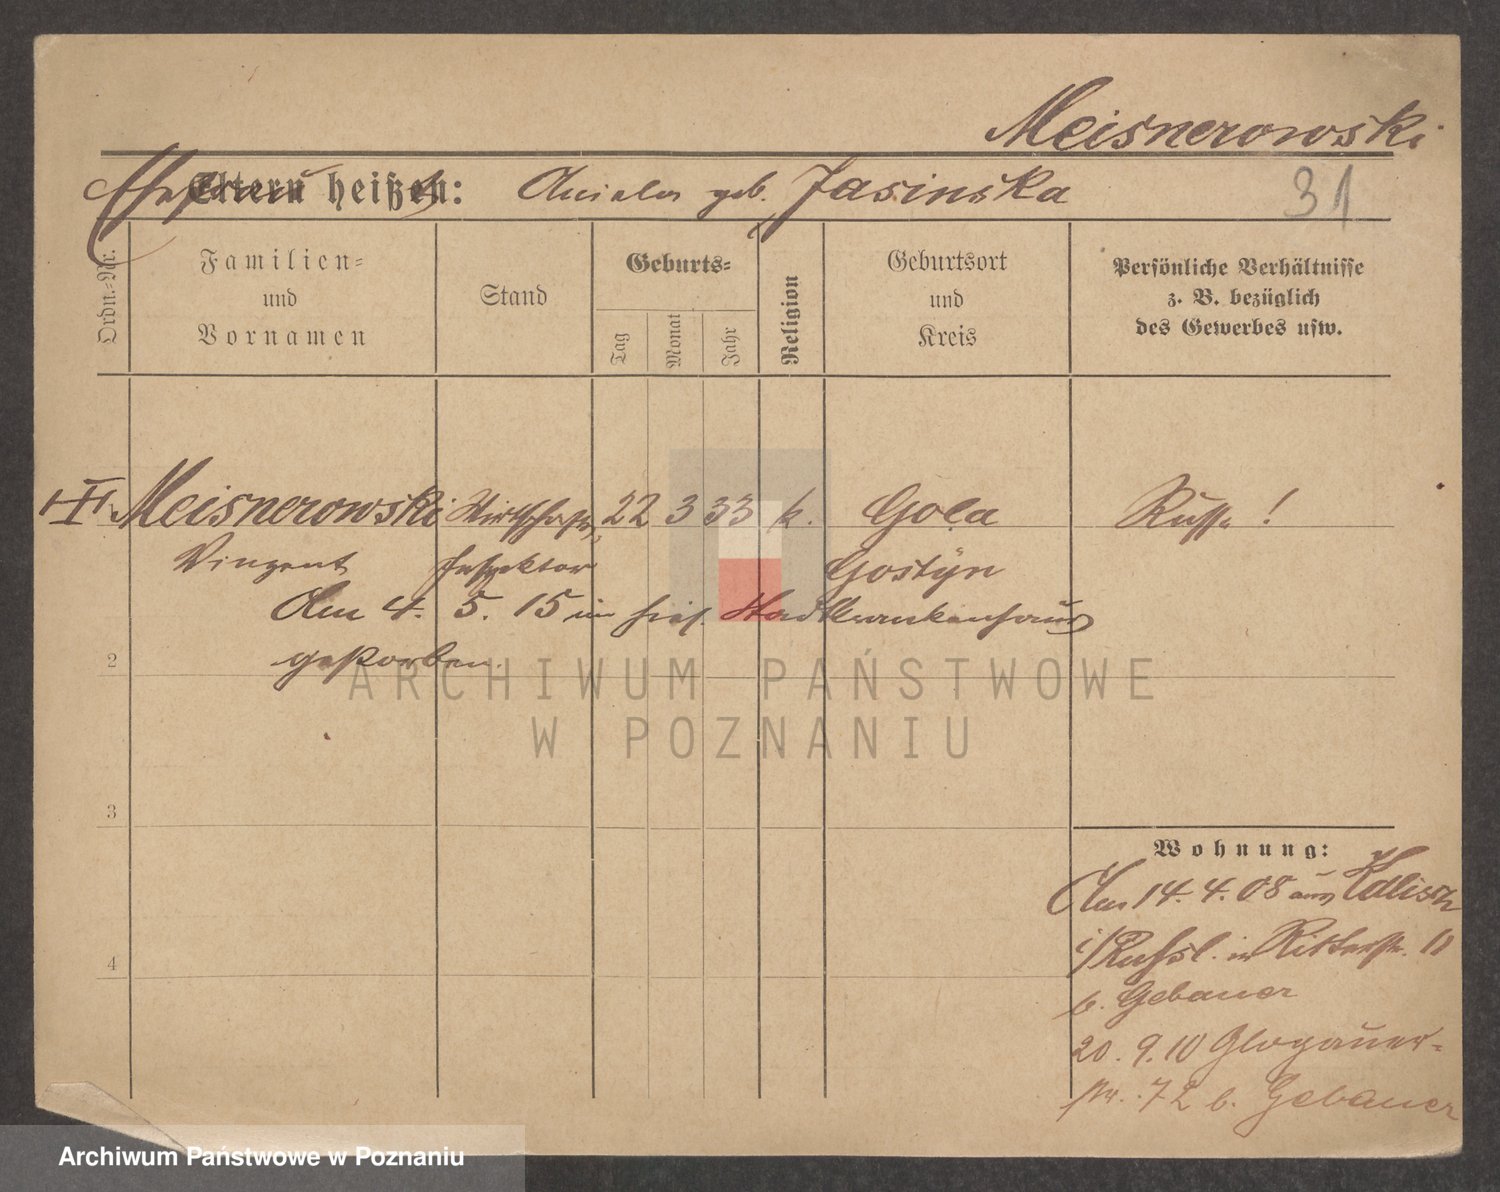 Meisnerowski
Ehefrau
Eltern heißen: Aniela geb. Jasinska
31
Ordn.-Nr.
Familien-
und
Vornamen
Stand
Geburts-
Tag
Monat
Jahr
Religion
Geburtsort
und
Kreis
Persönliche Verhältnisse
z. B. bezüglich
des Gewerbes usw.
Meisnerowski Wirthschafts- 22 3 33 k. Gola Russe!
Vinzent Inspektor Gostyn
Am 4. 5. 15 im hies. Stadtkrankenhaus
gestorben.
2
3
4
Wohnung:
Am 14. 4. 08 aus Kalisch
i/Russl. in Ritterstr. 11
b. Gebauer
20. 9. 10 Glogauer-
str. 72 b. Gebauer
ARCHIWUM PAŃSTWOWE
W POZNANIU
Archiwum Państwowe w Poznaniu